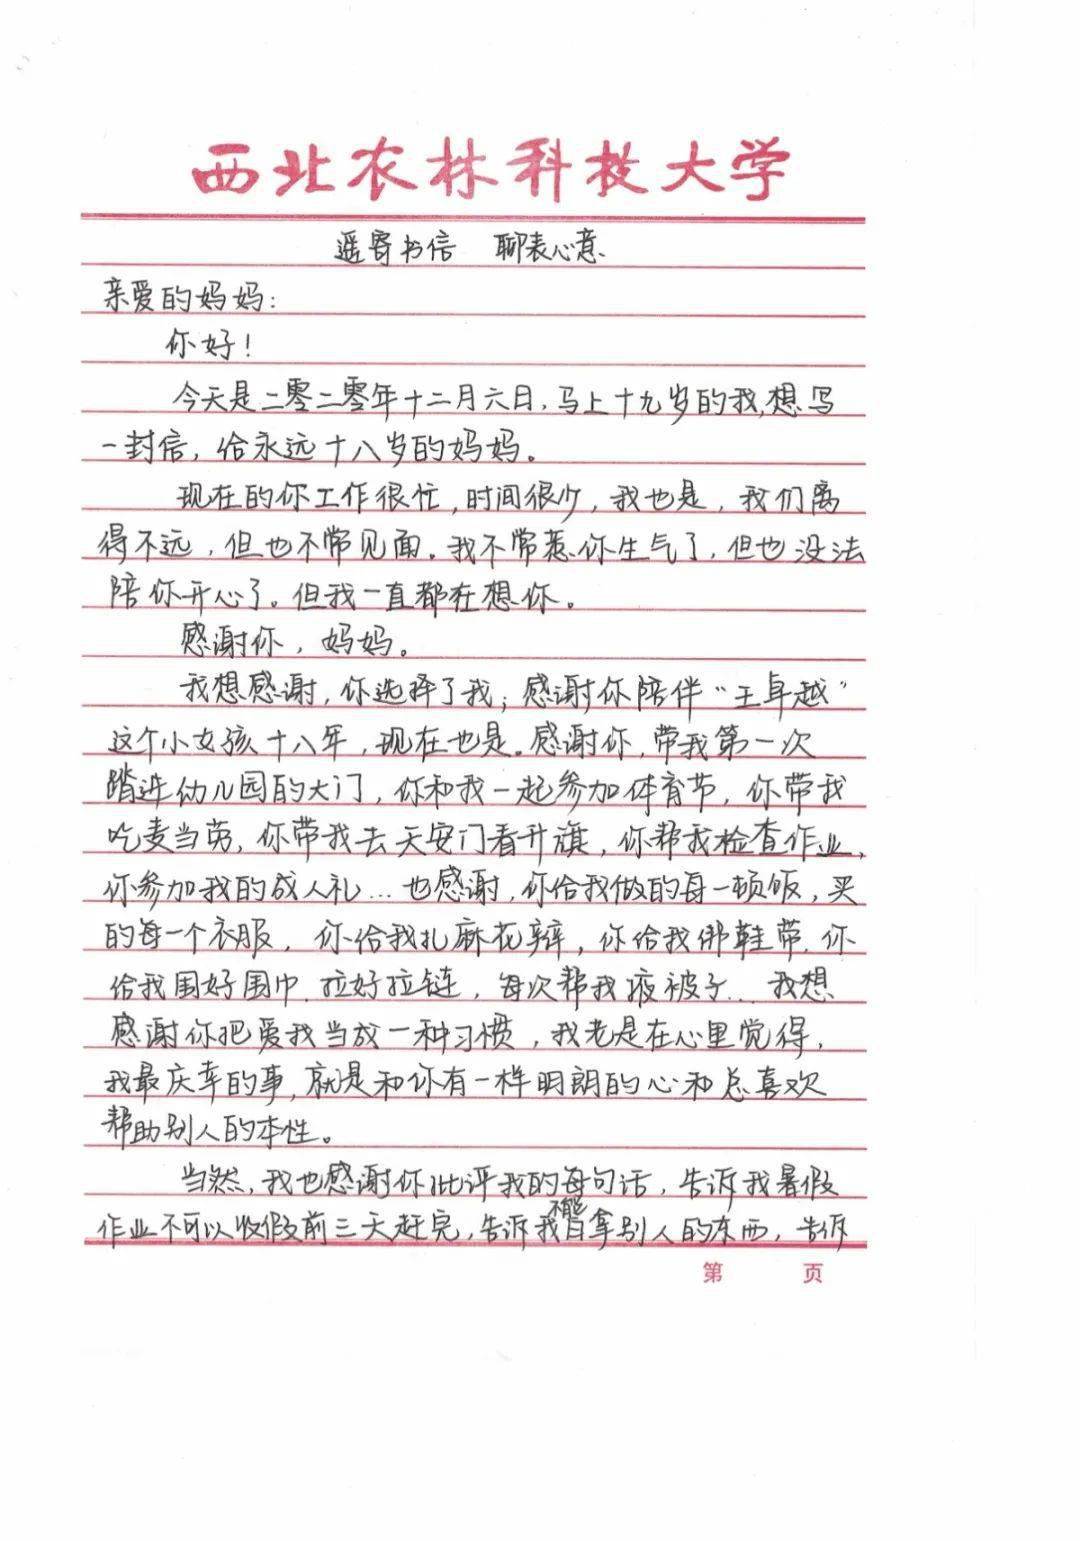 西北农林科技大学
遥寄书信 聊表心意
亲爱的妈妈：
你好！
今天是二零二零年十二月六日，马上十九岁的我，想写
一封信，给永远十八岁的妈妈。
现在的你工作很忙，时间很少，我也是，我们离
得不远，但也不常见面。我不常惹你生气了，但也没法
陪你开心了。但我一直都在想你。
感谢你，妈妈。
我想感谢，你选择了我；感谢你陪伴“王卓越”
这个小女孩十八年，现在也是。感谢你，带我第一次
踏进幼儿园的大门，你和我一起参加体育节，你带我
吃麦当劳，你带我去天安门看升旗，你帮我检查作业，
你参加我的成人礼…也感谢，你给我做的每一顿饭，买
的每一个衣服，你给我扎麻花辫，你给我绑鞋带，你
给我围好围巾，拉好拉链，每次帮我掖被子…我想
感谢你把爱我当做一种习惯，我老是在心里觉得，
我最庆幸的事，就是和你有一样明朗的心和总喜欢
帮助别人的本性。
当然，我也感谢你批评我的每句话，告诉我暑假
作业不可以收假前三天赶完，告诉我不能自拿别人的东西，告诉
第 页